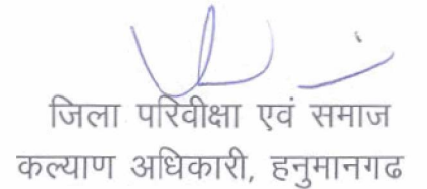 जिला परिवीक्षा एवं समाज
कल्याण अधिकारी, हनुमानगढ